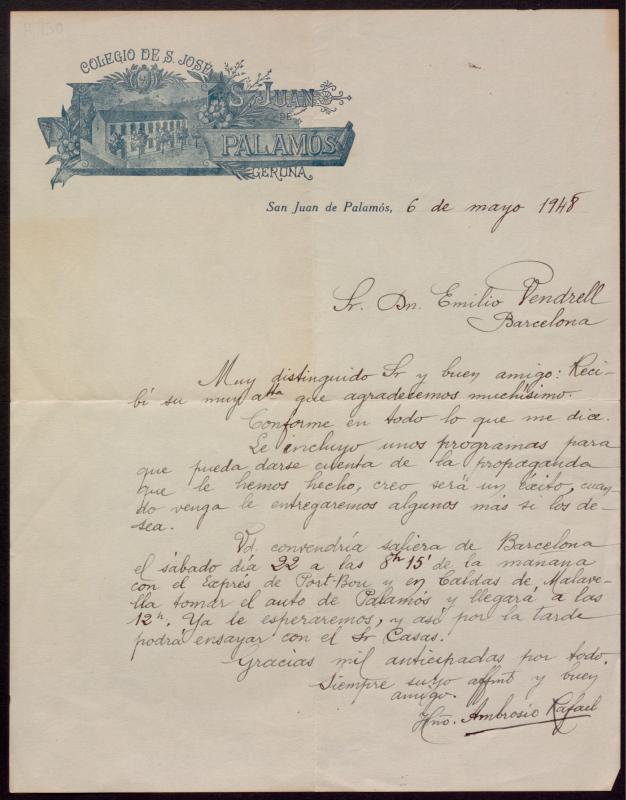 COLEGIO DE S. JOSÉ
S. JUAN
DE
PALAMÓS
GERONA
San Juan de Palamós, 6 de mayo 1948
Sr. Dn. Emilio Vendrell
Barcelona
Muy distinguido Sr y buen amigo: Reci-
bí su muy atta que agradecemos muchísimo.
Conforme en todo lo que me dice.
Le incluyo unos programas para
que pueda darse cuenta de la propaganda
que le hemos hecho, creo será un éxito, cuan-
do venga le entregaremos algunos más si los de-
sea.
Vd. convendría saliera de Barcelona
el sábado día 22 a las 8h 15' de la mañana
con el Exprés de Port-Bou y en Caldas de Malave-
lla tomar el auto de Palamós y llegará a las
12h. Ya le esperaremos, y así por la tarde
podrá ensayar con el Sr Casas.
Gracias mil anticipadas por todo.
Siempre suyo affmo y buen
amigo.
Hno. Ambrosio Rafael